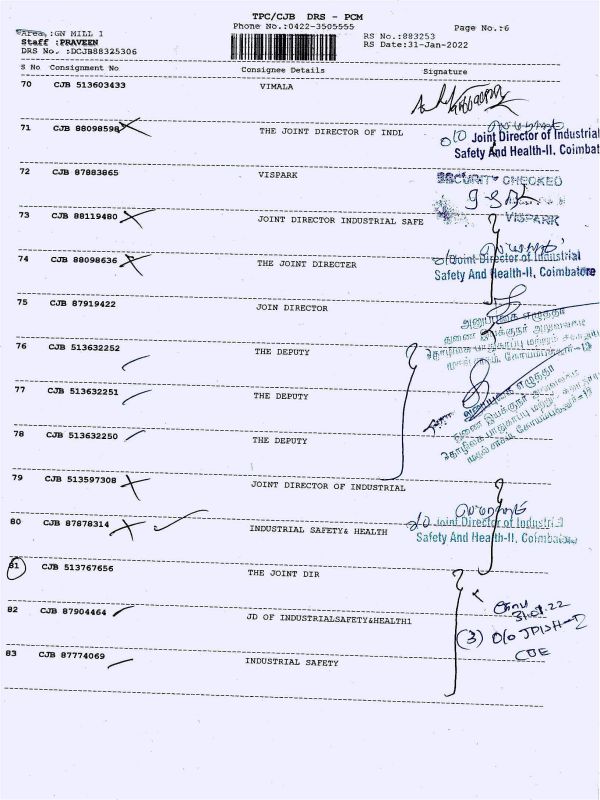 TPC/CJB DRS - PCM
Phone No.:0422-3505555
Page No.:6
Area :GN MILL 1
Staff :PRAVEEN
DRS No. :DCJB88325306
RS No.:883253
RS Date:31-Jan-2022
S No Consignment No Consignee Details Signature
70 CJB 513603433 VIMALA
71 CJB 88098598 THE JOINT DIRECTOR OF INDL
O/O Joint Director of Industrial
Safety And Health-II, Coimbat
72 CJB 87883865 VISPARK
SECURITY CHECKED
VISPARK
73 CJB 88119480 JOINT DIRECTOR INDUSTRIAL SAFE
74 CJB 88098636 THE JOINT DIRECTER
O/o Joint Director of Industrial
Safety And Health-II, Coimbatore
75 CJB 87919422 JOIN DIRECTOR
76 CJB 513632252 THE DEPUTY
77 CJB 513632251 THE DEPUTY
78 CJB 513632250 THE DEPUTY
79 CJB 513597308 JOINT DIRECTOR OF INDUSTRIAL
80 CJB 87878314 INDUSTRIAL SAFETY& HEALTH
O/o Joint Director of Industrial
Safety And Health-II, Coimbatore
81 CJB 513767656 THE JOINT DIR
82 CJB 87904464 JD OF INDUSTRIALSAFETY&HEALTH1
83 CJB 87774069 INDUSTRIAL SAFETY
31.01.22
(3) O/o JDISH-2
CBE